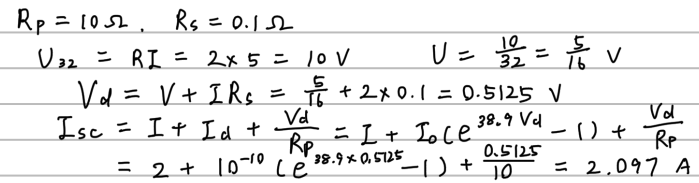 Rp = 10 Ω . Rs = 0.1 Ω
U₃₂ = RI = 2 × 5 = 10 V U = 10/32 = 5/16 V
Vd = V + I Rs = 5/16 + 2 × 0.1 = 0.5125 V
Isc = I + Id + Vd/Rp = I + I₀ (e^{38.9 Vd} - 1) + Vd/Rp
= 2 + 10⁻¹⁰ (e^{38.9 × 0.5125} - 1) + 0.5125/10 = 2.097 A